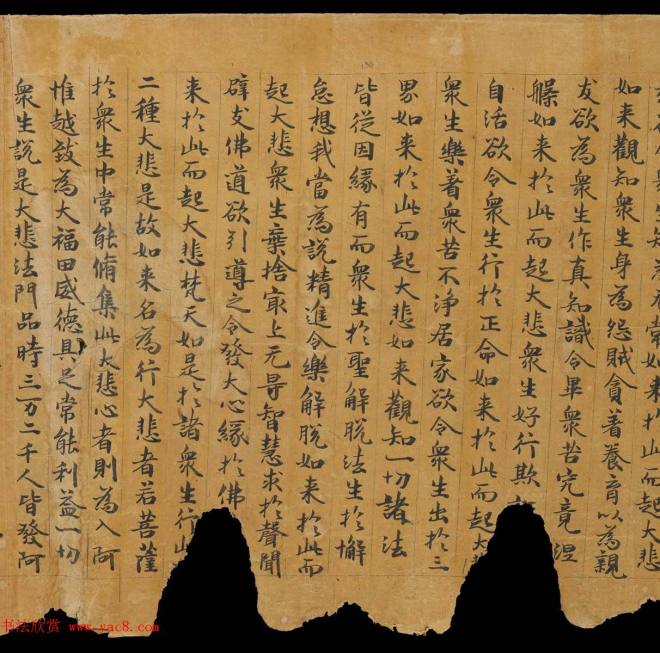 常如来於此而起大悲
如来觀知衆生身為怨賊貪著養育以為親
友欲為衆生作真知識令畢衆苦究竟涅
槃如来於此而起大悲衆生好行欺
自活欲令衆生行於正命如来於此而起大
衆生樂著衆苦不淨居家欲令衆生出於三
界如来於此而起大悲如来觀知一切諸法
皆從因緣有而衆生於聖解脫法生於懈
怠想我當為說精進令樂解脫如来於此而
起大悲衆生棄捨冣上无㝵智慧求於聲聞
辟支佛道欲引導之令發大心緣於佛
来於此而起大悲梵天如是於諸衆生行此
二種大悲是故如来名為行大悲者若菩薩
於衆生中常能脩集此大悲心者則為入阿
惟越致為大福田威德具足常能利益一切
衆生說是大悲法門品時三万二千人皆發阿
书法欣赏 www.yac8.com